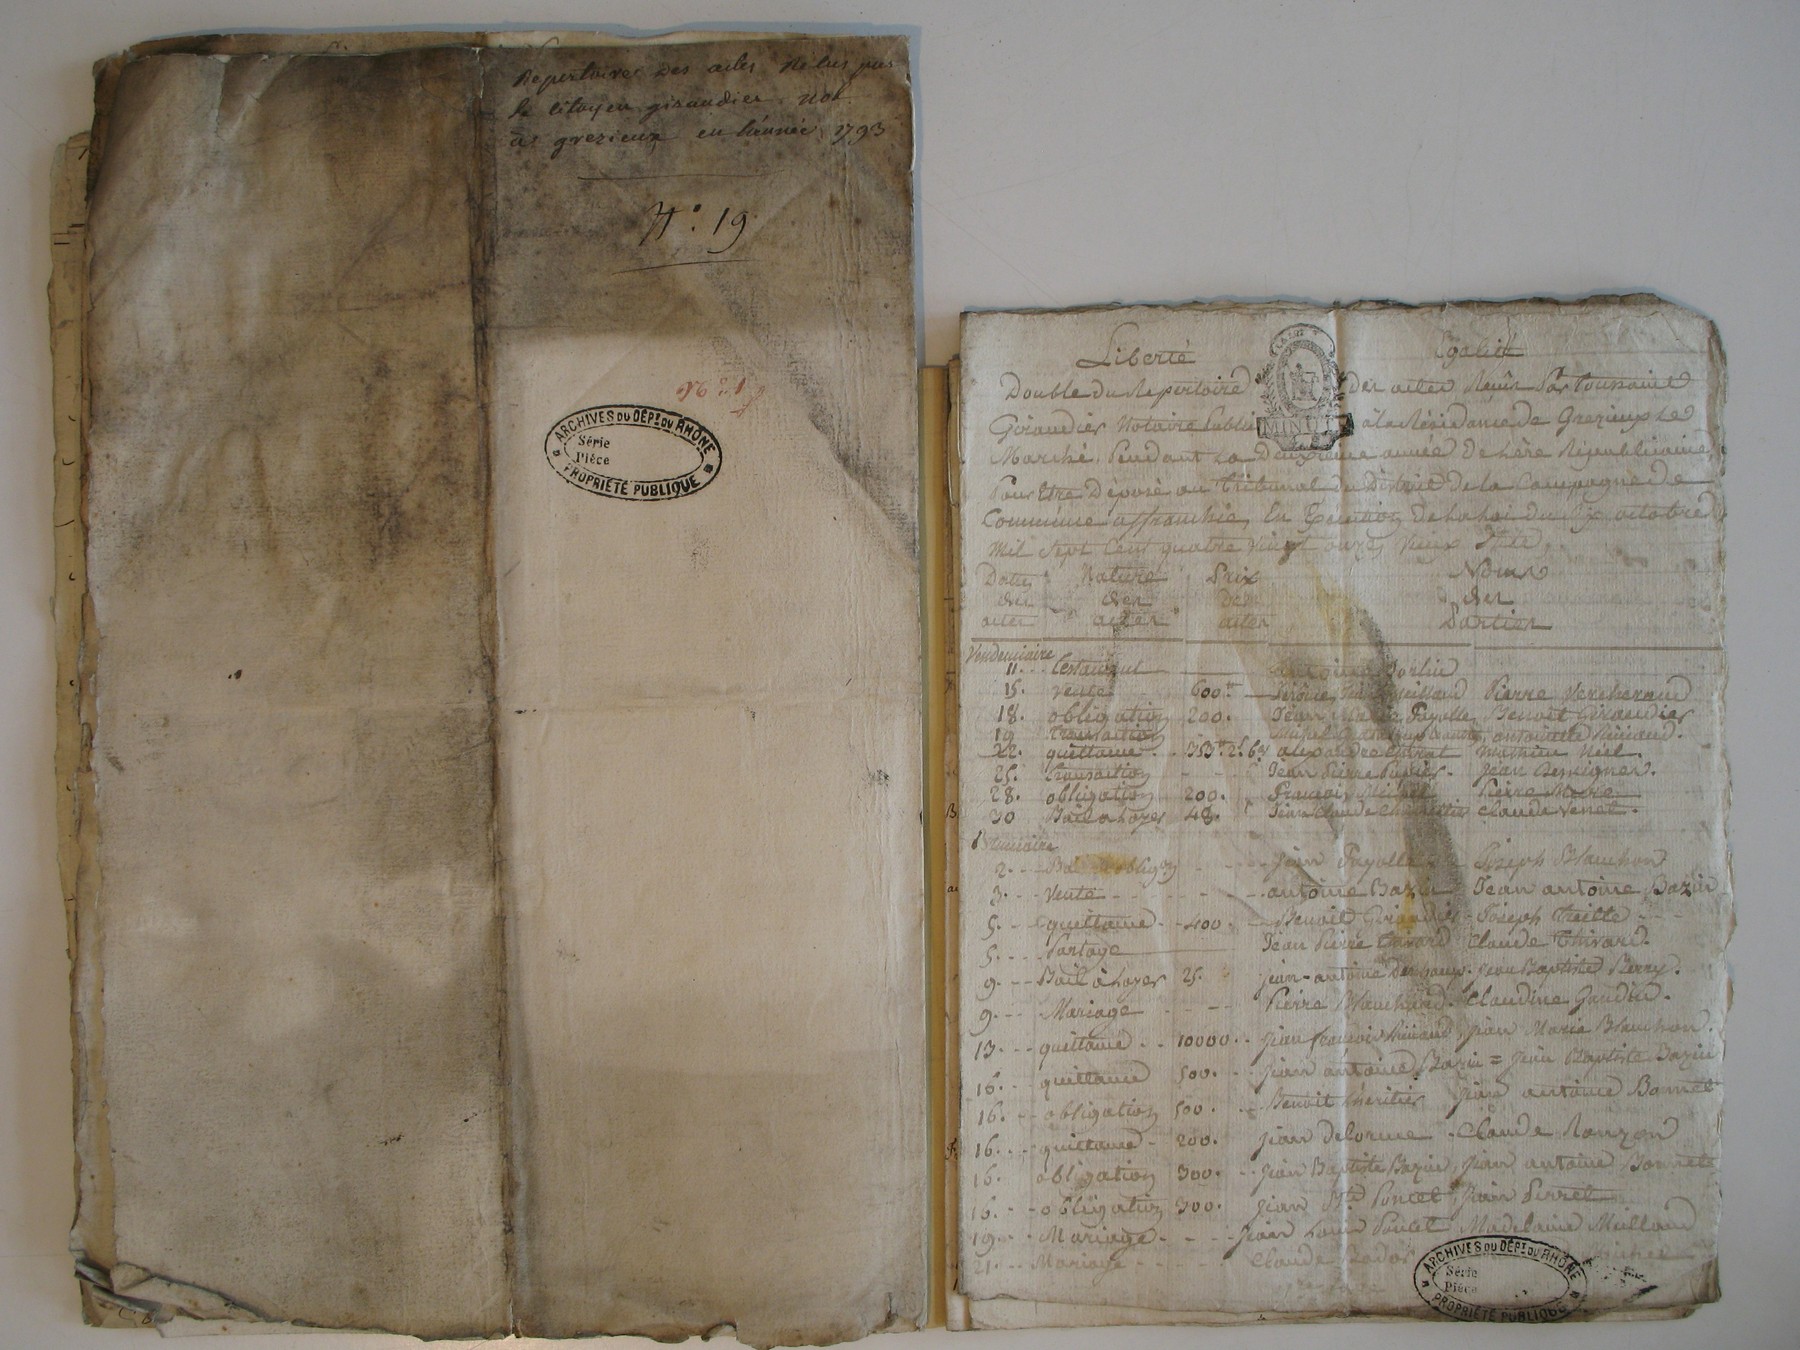 Repertoire des actes Relus par
le citoyen giraudier not
a grezieux en l'année 1793
N.° 19
ARCHIVES DU DÉPT. DU RHÔNE
Série
Pièce
PROPRIÉTÉ PUBLIQUE
Liberté Egalité
Double du Repertoire des actes Reçus Par toussaint
Giraudier Notaire Public à la Résidance de Grezieux Le
MINUT
Marché Pendant La Deuxieme année De l'ère Républicaine
Pour Etre Déposé au Tribunal du District de la Campagne de
Commune affranchie, En Execution de la loi du Six octobre
Mil Sept Cent quatre vingt onze, vieux Stile
Dates Nature Prix Noms
des des des des
actes actes actes Parties
Vendemiaire
11. Testament Antoine
15. vente 600
Pierre Vercherand
18. obligation 200. Jean Marie Fayolle, Benoit Giraudier
19 transaction antoinette
22. quittance alexandre Mathieu
25. transaction Jean Pierre Jean
28. obligation 200. François Michel Pierre
30 Bail a Loyer 48. Jean Claude Claude Venet.
Brumaire
2. Jean Fayolle Joseph Blanchon
3. Vente antoine Bazin Jean antoine Bazin
5. quittance 400. Benoit Giraudier Joseph
5. Partage Jean Pierre Thivard Claude Thivard.
9. Bail à Loyer 25. jean-antoine jean Baptiste Berry.
9. Mariage Pierre Blanchard. Claudine Gaudin.
13. quittance 10000. jean françois jean Marie Blanchon.
16. quittance 500. jean antoine Bazin = jean Baptiste Bazin
16. obligation 500. Benoit Lheritier jean antoine Bonnet
16. quittance 200. jean delorme. Claude Ronzon
16. obligation 300. jean Baptiste Bazin, jean antoine Bonnet
16. obligation 300. jean Bte Poncet, jean Perret
19. Mariage jean Louis Poncet Madelaine Meilland
21. Mariage Claude
ARCHIVES DU DÉPT. DU RHÔNE
Série
Pièce
PROPRIÉTÉ PUBLIQUE